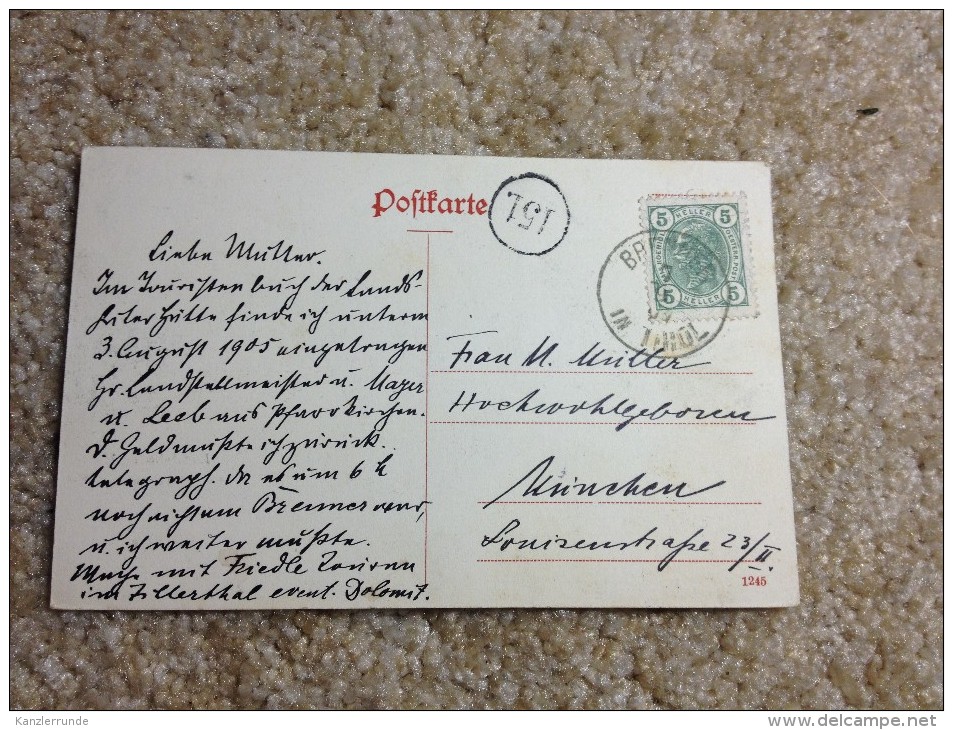 Postkarte
151
5 HELLER 5
5 HELLER 5
IN TIROL
Liebe Mutter.
Im Touristenbuch der Lands-
huter Hütte finde ich unterm
3. August 1905 eingetragen
Hr. Landstallmeister u. Mayer
u. Leeb aus Pfarrkirchen.
D. Geld mußte ich zurück
telegraph. da es um 6 h
noch nicht am Brenner war,
u. ich weiter mußte.
Mache mit Friedle Touren
im Zillerthal event. Dolomit.
Frau M. Müller
Hochwohlgeboren
München
Louisenstraße 23/II.
1245
Kanzlerrunde
http://www.delcampe.net